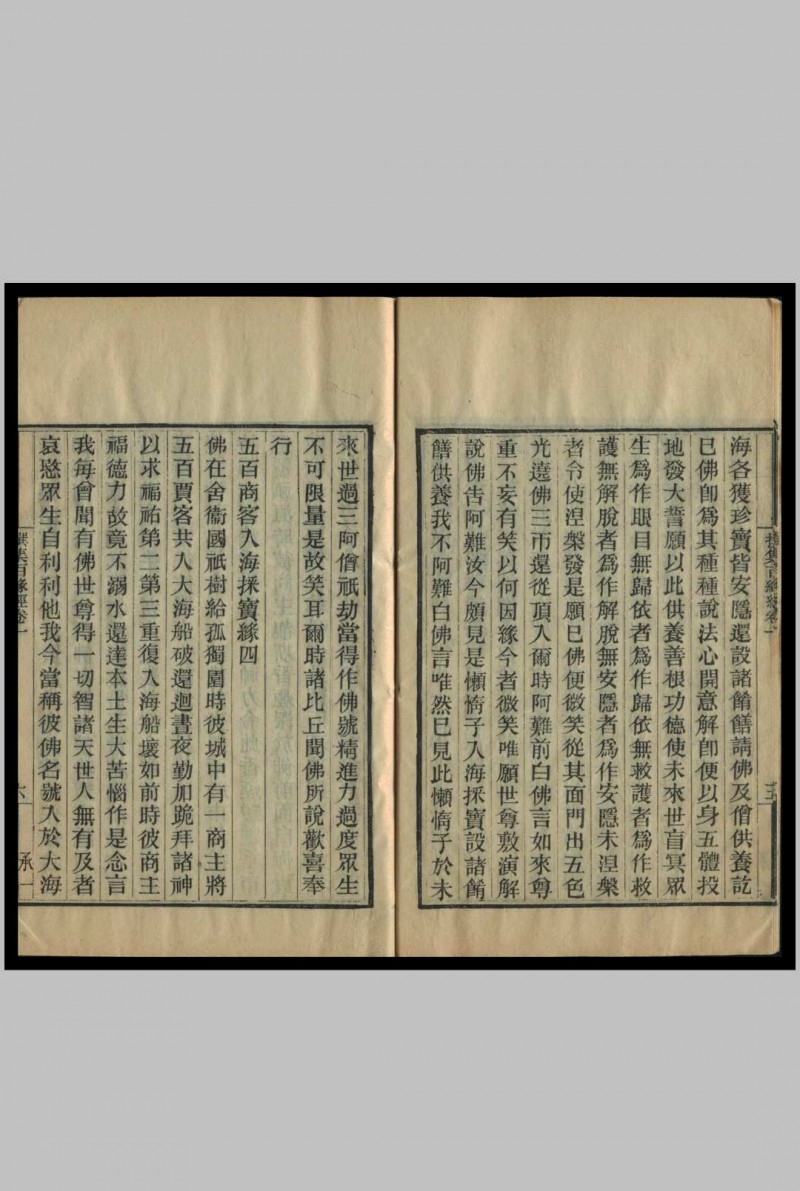 海各獲珍寶皆安隱還設諸餚饍請佛及僧供養訖
已佛卽爲其種種說法心開意解卽便以身五體投
地發大誓願以此供養善根功德使未來世盲冥眾
生爲作眼目無歸依者爲作歸依無救護者爲作救
護無解脫者爲作解脫無安隱者爲作安隱未涅槃
者令使涅槃發是願已佛便微笑從其面門出五色
光遶佛三帀還從頂入爾時阿難前白佛言如來尊
重不妄有笑以何因緣今者微笑唯願世尊敷演解
說佛告阿難汝今頗見是懶惰子入海採寶設諸餚
饍供養我不阿難白佛言唯然已見此懶惰子於未
來世過三阿僧祇劫當得作佛號精進力過度眾生
不可限量是故笑耳爾時諸比丘聞佛所說歡喜奉
行
五百商客入海採寶緣四
佛在舍衞國祇樹給孤獨園時彼城中有一商主將
五百賈客共入大海船破還迴晝夜勤加跪拜諸神
以求福祐第二第三重復入海船壞如前時彼商主
福德力故竟不溺水還達本土生大苦惱作是念言
我每曾聞有佛世尊得一切智諸天世人無有及者
哀愍眾生自利利他我今當稱彼佛名號入於大海
撰集百緣經卷一
六
承一